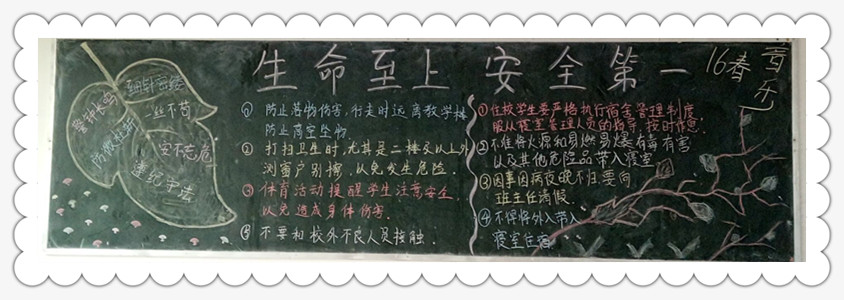 生命至上 安全第一
16春
音乐
细针密缕
一丝不苟
警钟长鸣
防微杜渐
安不忘危
遵纪守法
① 防止落物伤害,行走时远离教学楼
防止高空坠物.
② 打扫卫生时,尤其是二楼及以上外
测窗户别擦,以免发生危险.
③ 体育活动提醒学生注意安全
以免造成身体伤害.
④ 不要和校外不良人员接触.
①住校学生要严格执行宿舍管理制度,
服从寝室管理人员的指导,按时作息.
②不准将火源和易燃易爆有毒有害
以及其他危险品带入寝室
③因事因病夜晚不归要向
班主任请假
④不得将外人带入
寝室住宿